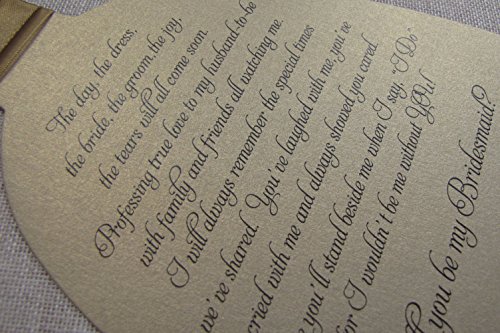 The day, the dress,
the bride, the groom the joy,
the tears will all come soon.
Professing true love to my husband-to-be
with family and friends all watching me.
I will always remember the special times
we've shared. You've laughed with me, you've
cried with me and always showed you cared.
you'll stand beside me when I say, "I Do"
or I wouldn't be me without YOU!
you be my Bridesmaid?